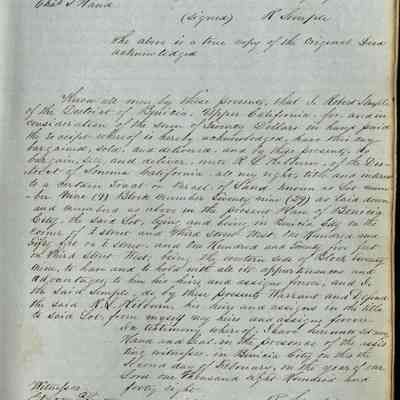 Chas S. Hand
(signed) R Semple
The above is a true copy of the Original Deed
acknowledged
Know all men by these presents, that I Robert Semple
of the District of Benicia, Upper California, for and in
consideration of the sum of Twenty Dollars in hand paid
the receipt whereof is hereby acknowledged, have this day
bargained, sold, and delivered, and by these presents, do
bargain, sell, and deliver, unto R. L. Kilburn, of the Dis-
trict of Sonoma California, all my right, title and interest
to a certain Tract or Parcel of Land known as Lot num-
ber Nine (9) Block Number Twenty nine (29) as laid down
and numbered as above in the present Plan of Benicia
City, the said Lot, lying and being in Benicia City on the
corner of I Street and Third Street West. One Hundred and
fifty feet on I Street, and One Hundred and Twenty feet
on Third Street West, being the western side of Block Twenty
Nine, to have and to hold with all its appurtenances and
advantages, to him his heirs and assigns forever, and I
the said Semple do by these presents Warrant and Defend
the said R. L. Kilburn his heirs and assigns in the title
to said Lot, from myself my heirs and assigns forever.
In testimony whereof, I have hereunto set my
Hand and Seal in the presence of the assis
ting witnesses, in Benicia City on this the
Second day of February, in the year of our
Lord one thousand Eight Hundred and
forty eight.
Witnesses